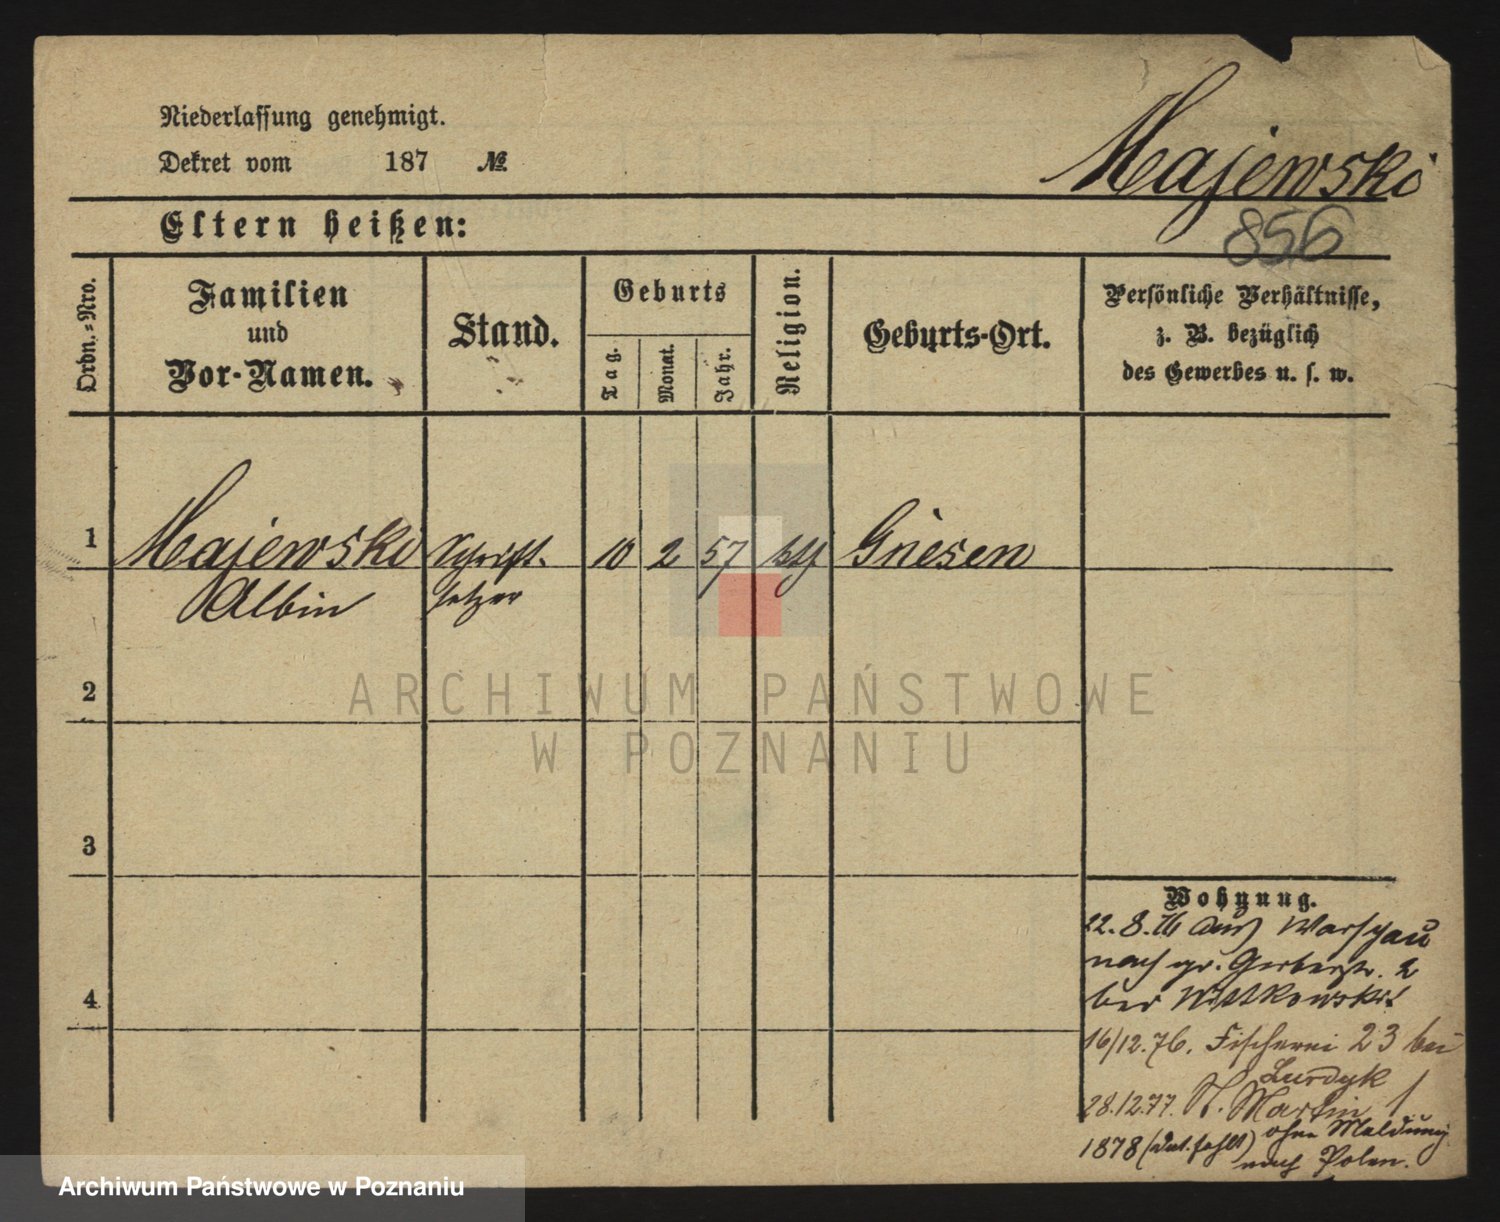 Niederlassung genehmigt.
Dekret vom 187 №
Majewski
856
Eltern heißen:
Ordn.=Nro.
Familien
und
Vor-Namen.
Stand.
Geburts
Tag.
Monat.
Jahr.
Religion.
Geburts-Ort.
Persönliche Verhältnisse,
z. B. bezüglich
des Gewerbes u. s. w.
1 Majewski Schrift- 10 2 57 kth Gnesen
Albin setzer
2
3
4
Wohnung.
22.8.76 aus Warschau
nach gr. Gerberstr. 2
bei Wittkowski
16/12.76. Fischerei 23 bei
Lurdyk
28.12.77. St. Martin 1
1878 (Dat. fehlt) ohne Meldung
nach Polen.
ARCHIWUM PAŃSTWOWE
W POZNANIU
Archiwum Państwowe w Poznaniu